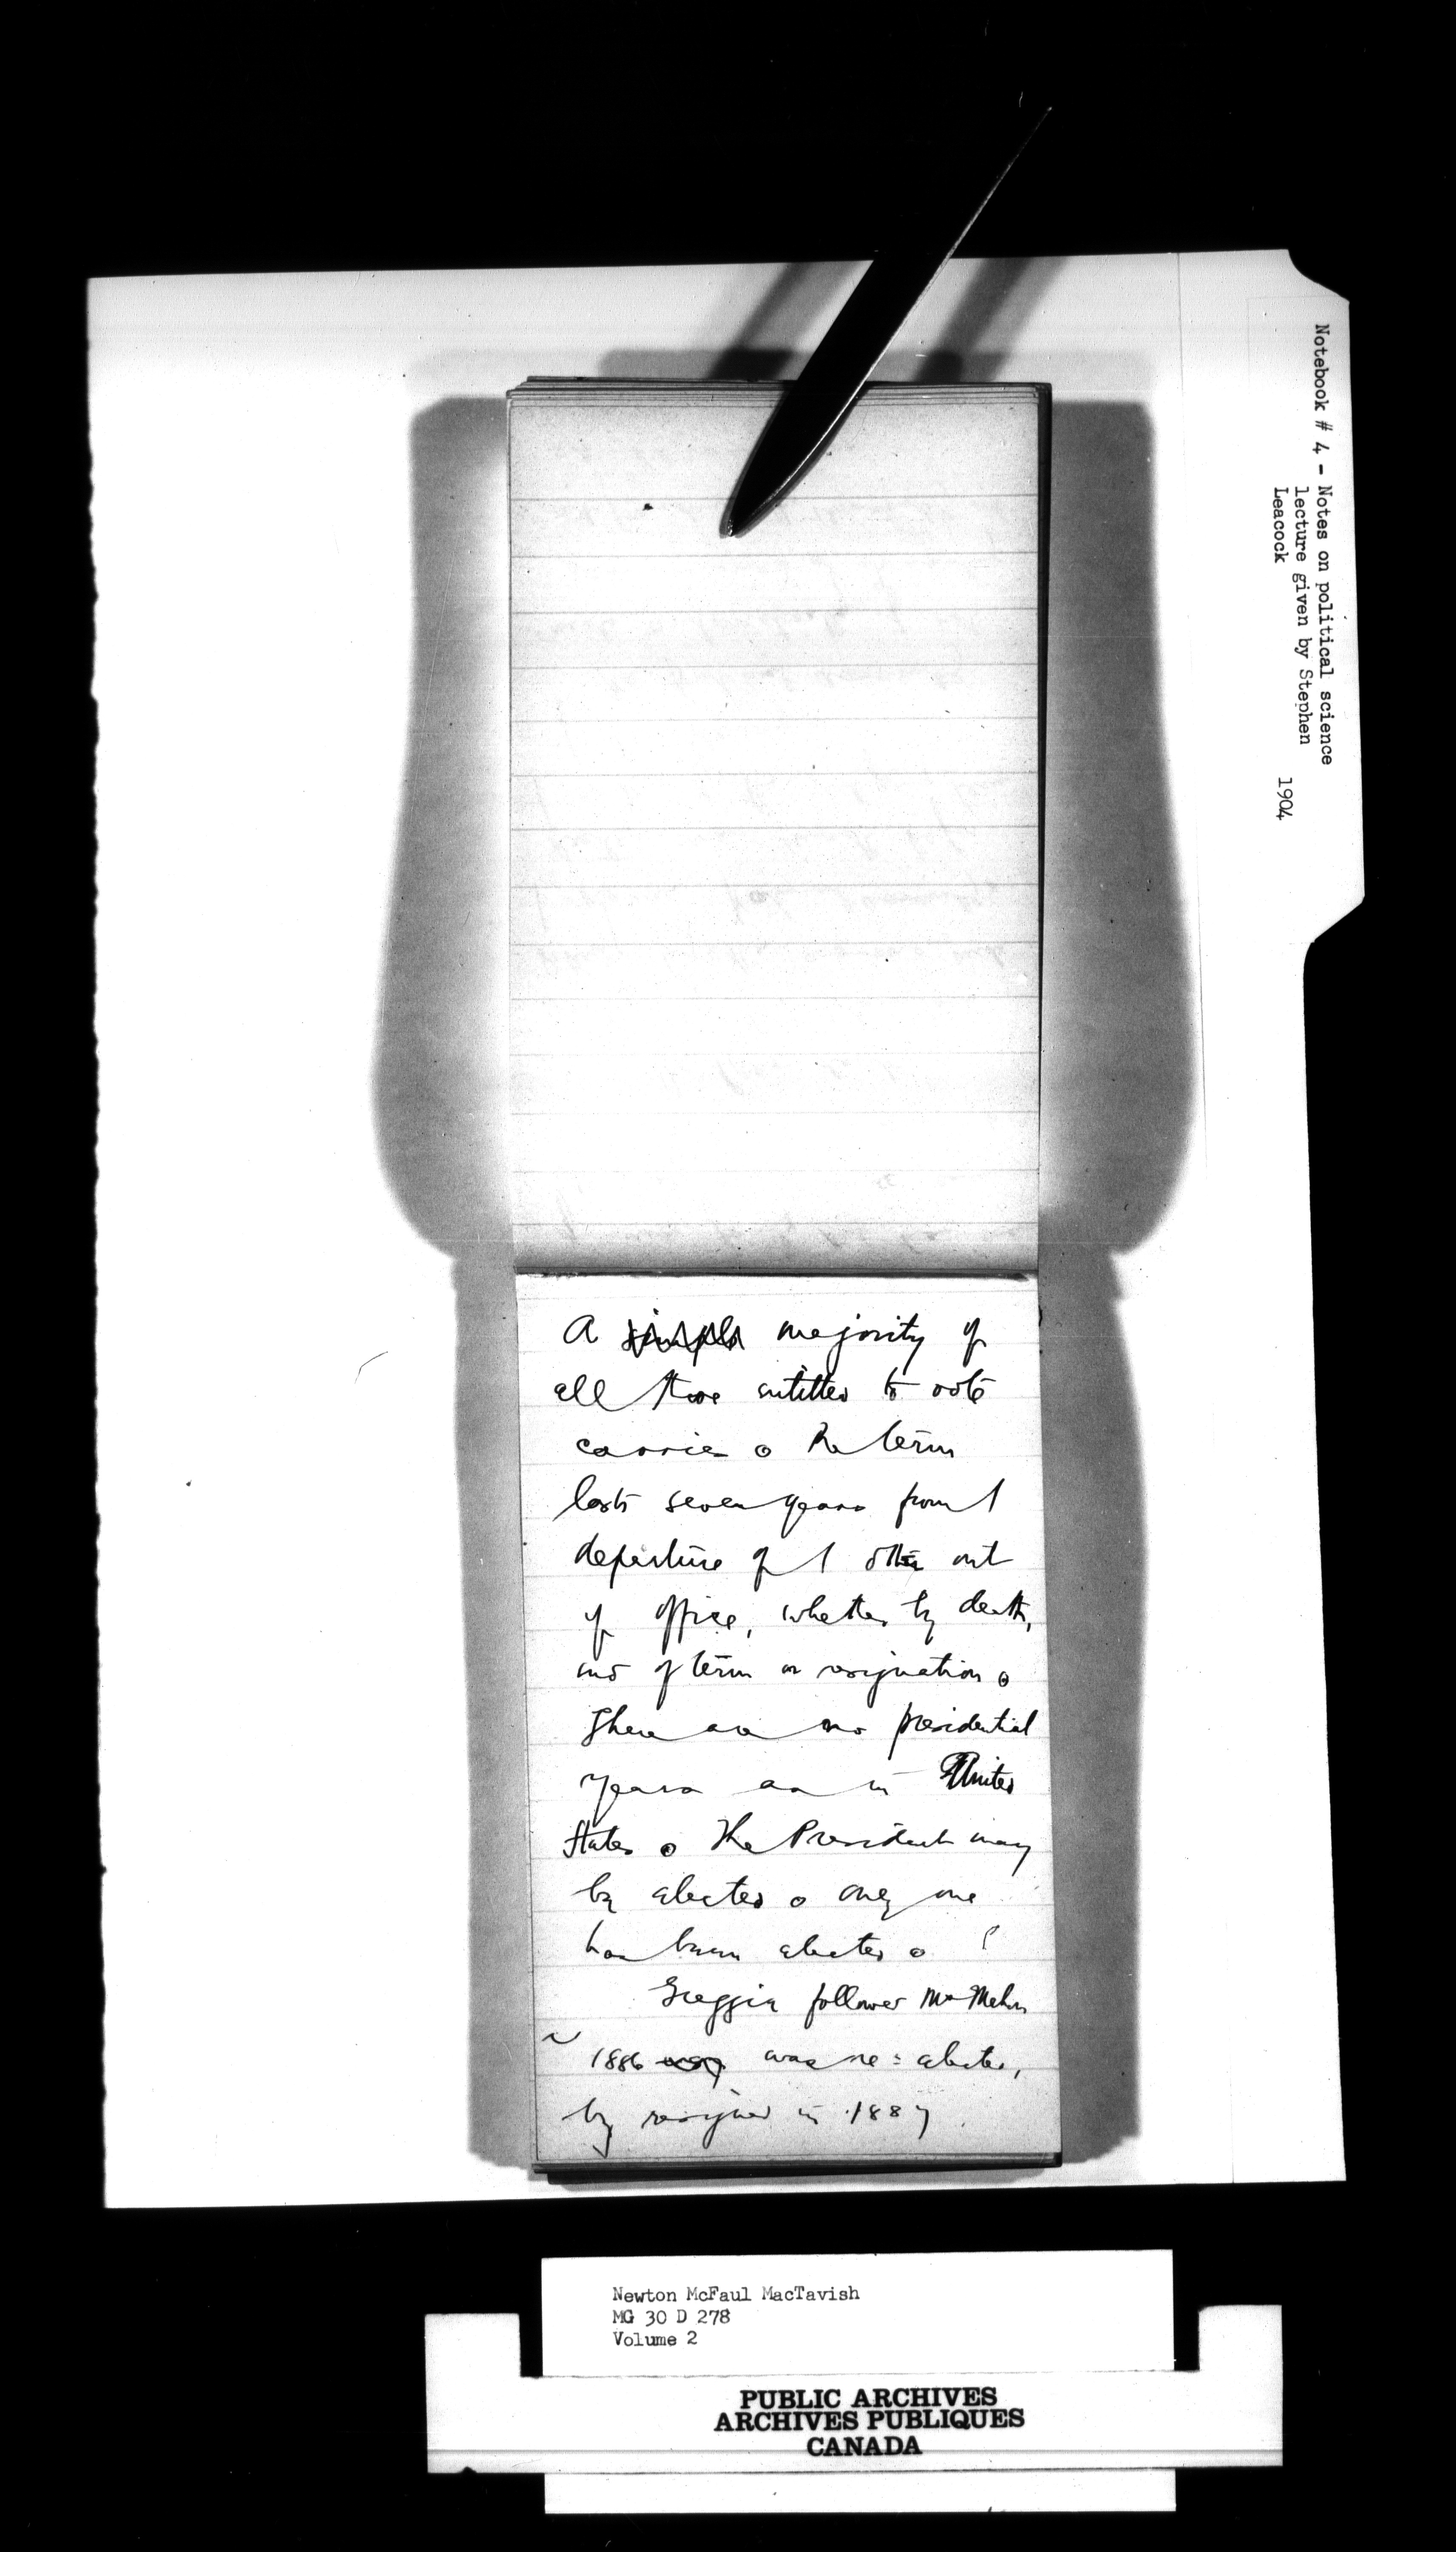 Notebook # 4 - Notes on political science
lecture given by Stephen
Leacock 1904
A simple majority of
all those entitled to vote
carries o The term
lasts seven years from /
departure of / other out
of office, whether by death,
end of term or resignation o
There are no presidential
years as in United
States o The President may
be elected o any one
has been elected o
follower McMahon
1886 was re=elected,
by resigned in 1887
Newton McFaul MacTavish
MG 30 D 278
Volume 2
PUBLIC ARCHIVES
ARCHIVES PUBLIQUES
CANADA